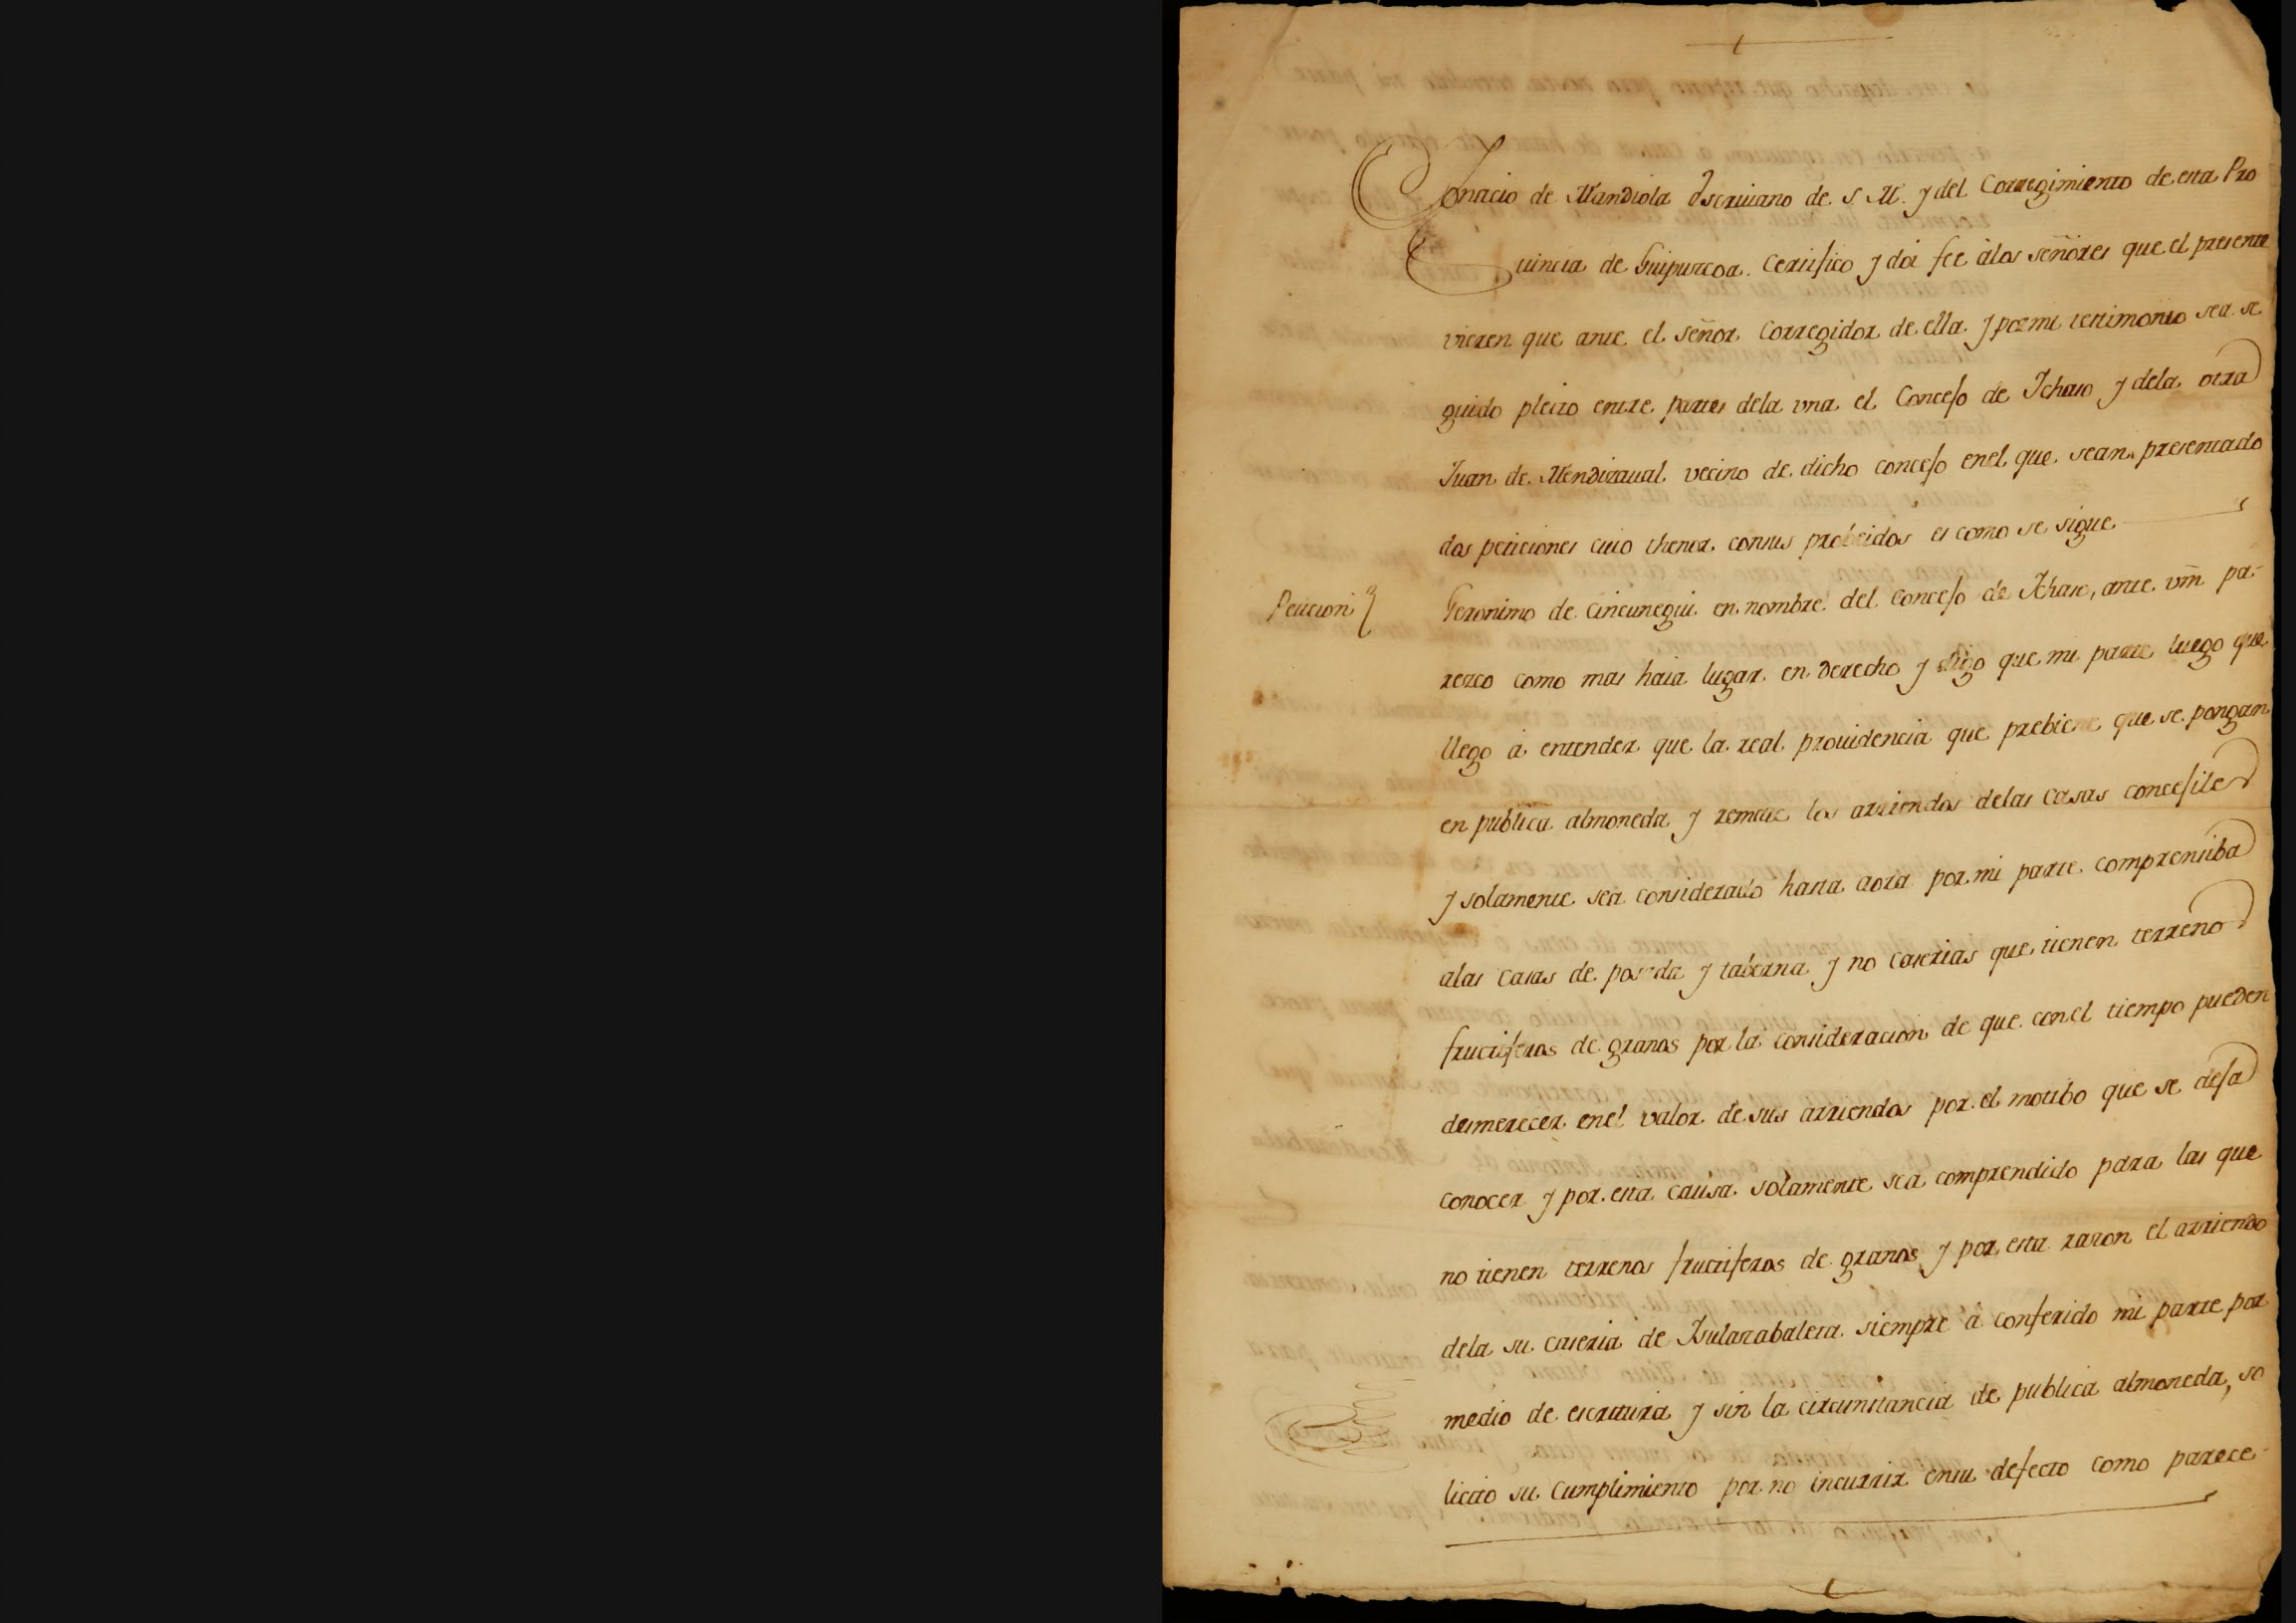 Ignacio de Mandiola Escriuano de S. M. y del Corregimiento de esta Pro
uincia de Guipuzcoa. Certifico y doi fee â los señores que el presente
vieren que ante el señor Corregidor de ella y por mi testimonio sea se
guido pleito entre partes dela vna el Concejo de Ichaso y dela otra
Juan de Mendizaual vecino de dicho concejo enel que sean presentado
dos peticiones cuio thenor consus probeidos es como se sigue
Peticion
Geronimo de Cincunegui en nombre del concejo de Ichaso, ante vm̃ pa-
rezco como mas haia lugar en derecho y digo que mi parte luego que
llego â entender que la real prouidencia que prebiene que se pongan
en publica almoneda y remate los arriendos delas casas concejiles
y solamente sea considerado hasta aora por mi parte comprensiba
alas casas de posada y taberna y no caserias que tienen terreno
fructiferos de granos por la consideracion de que con el tiempo pueden
desmerecer enel valor de sus arriendos por el motibo que se deja
conocer y por esta causa solamente sea comprendido para las que
no tienen terrenos fructiferos de granos y por esta razon el arriendo
dela su caseria de Isulazabaleta siempre â conferido mi parte por
medio de escritura y sin la circunstancia de publica almoneda, so
licito su cumplimiento por no incurrir ensu defecto como parece